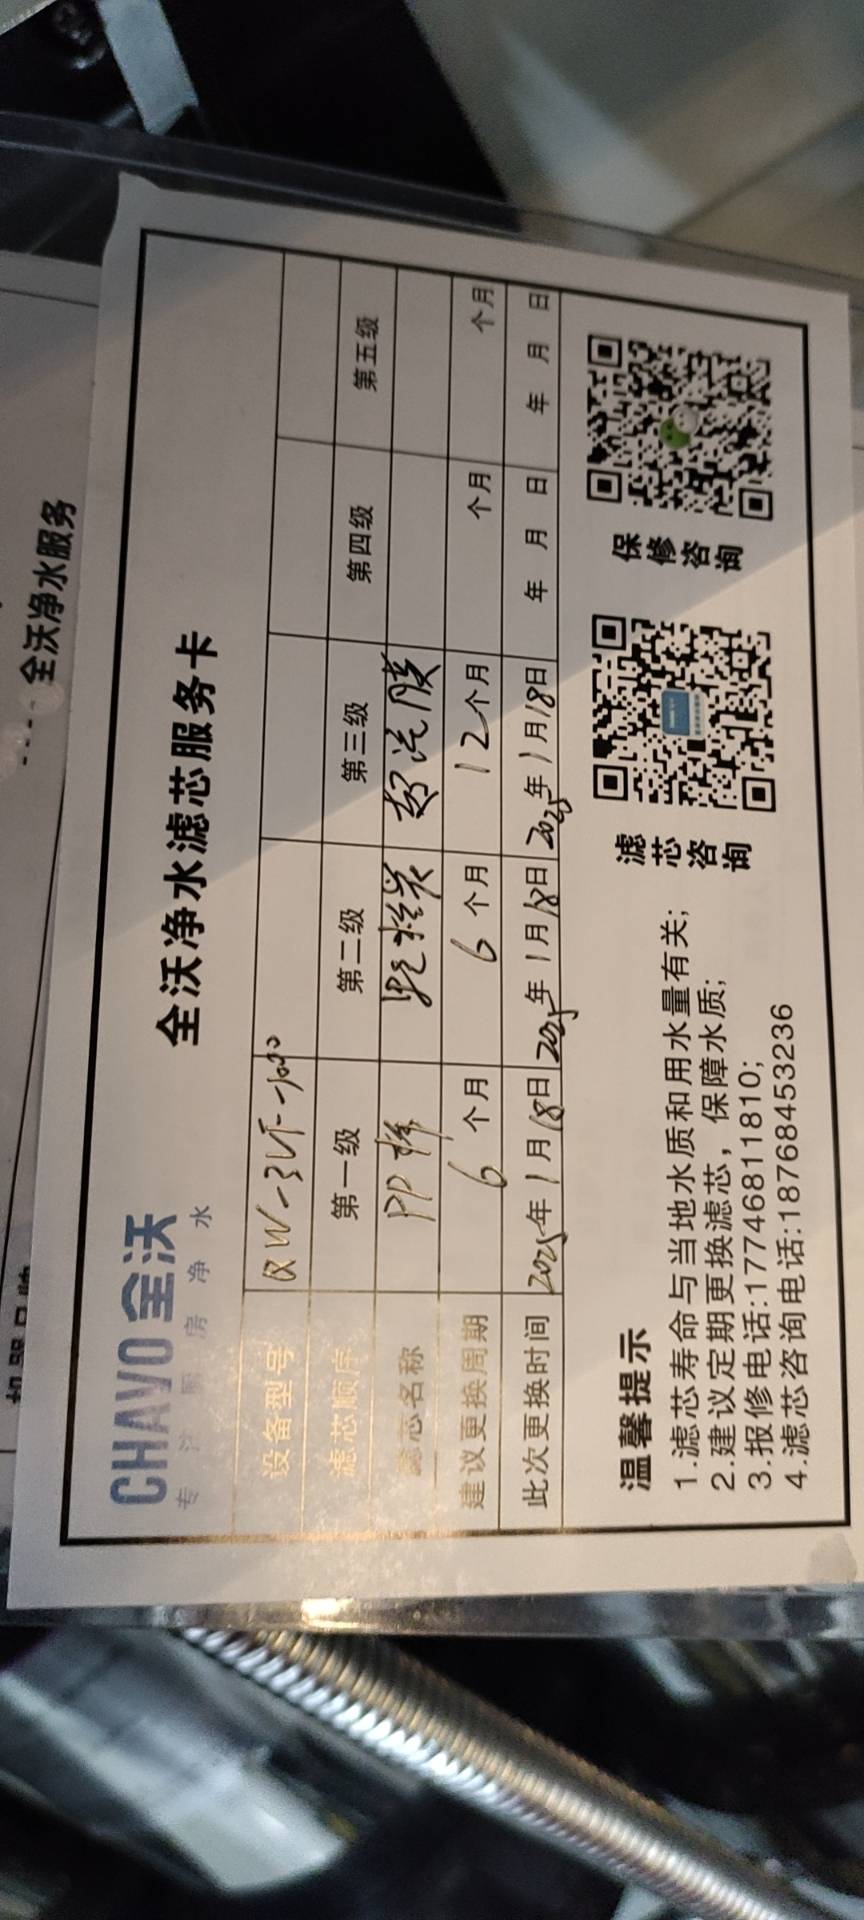 CHAVO 全沃
专注厨房净水
全沃净水滤芯服务卡
设备型号 QW-3UF-1000
滤芯顺序 第一级 第二级 第三级 第四级 第五级
滤芯名称 PP棉 超滤膜
建议更换周期 6个月 6个月 12个月 个月 个月
此次更换时间 2025年1月18日 2025年1月18日 2025年1月18日 年 月 日 年 月 日
温馨提示
1.滤芯寿命与当地水质和用水量有关;
2.建议定期更换滤芯，保障水质;
3.报修电话:17746811810;
4.滤芯咨询电话:18768453236
滤芯咨询
保修咨询
全沃净水服务